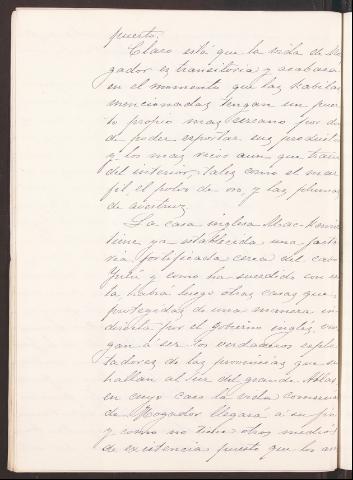 puerto.
Claro está que la vida de Mo-
gador es transitoria y acabará
en el momento que las kabilas
mencionadas tengan un puer-
to propio mas cercano por do
de poder esportar sus productos
y los mas ricos aun que traen
del interior, tales como el mar-
fil, el polvo de oro, y las plumas
de avestruz.
La casa inglesa Mac-Kenzie
tiene ya establecida una facto-
ria fortificada cerca del cabo
Yubi y como ha sucedido con es
ta, habrá luego otras casas que
protegidas de una manera in-
directa por el gobierno inglés, ven
gan á ser los verdaderos esplo-
tadores de las provincias que se
hallan al Sur del grande Atlas
en cuyo caso la vida comercial
de Mogador llegará á su fin
y como no tiene otros medios
de existencia puesto que los